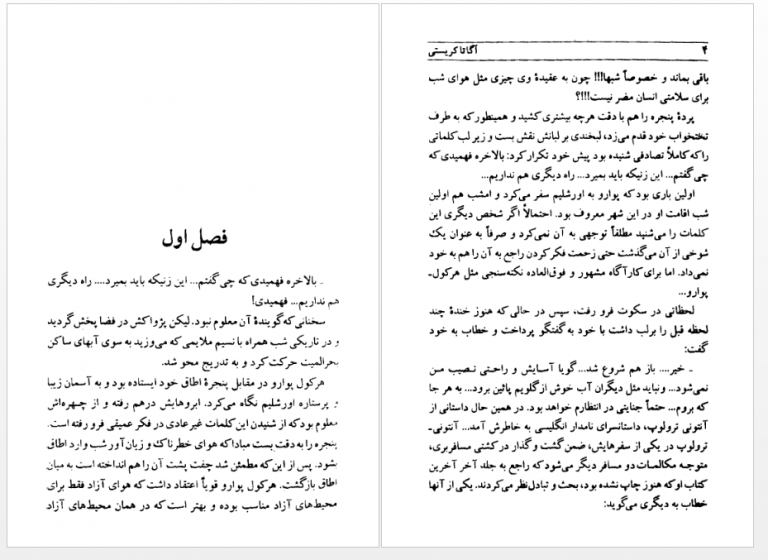 فصل اول
ـ بالاخره فهمیدی که چی گفتم... این زنیکه باید بمیرد.... راه دیگری
هم نداریم... فهمیدی!
سخنانی که گویندهٔ آن معلوم نبود. لیکن پژواکش در فضا پخش گردید
و در تاریکی شب همراه با نسیم ملایمی که می‌وزید به سوی آبهای ساکن
بحرالمیت حرکت کرد و به تدریج محو شد.
هرکول پوارو در مقابل پنجرهٔ اطاق خود ایستاده بود و به آسمان زیبا
و پرستاره اورشلیم نگاه می‌کرد. ابروهایش درهم رفته و از چهره‌اش
معلوم بود که از شنیدن این کلمات غیرعادی در فکر عمیقی فرو رفته است.
پنجره را به دقت بست مبادا که هوای خطرناک و زیان‌آور شب وارد اطاق
بشود. پس از این که مطمئن شد چفت پشت آن را هم انداخته است به میان
اطاق بازگشت. هرکول پوارو قویاً اعتقاد داشت که هوای آزاد فقط برای
محیط‌های آزاد مناسب بوده و بهتر است که در همان محیط‌های آزاد
۴ آگاتا کریستی
باقی بماند و خصوصاً شبها!!! چون به عقیدهٔ وی چیزی مثل هوای شب
برای سلامتی انسان مضر نیست!!!؟
پردهٔ پنجره را هم با دقت هرچه بیشتری کشید و همینطور که به طرف
تختخواب خود قدم می‌زد، لبخندی بر لبانش نقش بست و زیر لب کلماتی
را که کاملاً تصادفی شنیده بود پیش خود تکرار کرد: بالاخره فهمیدی که
چی گفتم... این زنیکه باید بمیرد... راه دیگری هم نداریم...
اولین باری بود که پوارو به اورشلیم سفر می‌کرد و امشب هم اولین
شب اقامت او در این شهر معروف بود. احتمالاً اگر شخص دیگری این
کلمات را می‌شنید مطلقاً توجهی به آن نمی‌کرد و صرفاً به عنوان یک
شوخی از آن می‌گذشت حتی زحمت فکر کردن راجع به آن را هم به خود
نمی‌داد. اما برای کارآگاه مشهور و فوق‌العاده نکته‌سنجی مثل هرکول‌ـ
پوارو...
لحظاتی در سکوت فرو رفت، سپس در حالی که هنوز خندهٔ چند
لحظه قبل را برلب داشت با خود به گفتگو پرداخت و خطاب به خود
گفت:
ـ خیر.... باز هم شروع شد...گویا آسایش و راحتی نصیب من
نمی‌شود... و نباید مثل دیگران آب خوش از گلویم پائین برود... به هر جا
که بروم... حتماً جنایتی در انتظارم خواهد بود. در همین حال داستانی از
آنتونی ترولوپ، داستانسرای نامدار انگلیسی به خاطرش آمد... آنتونی‌ـ
ترولوپ در یکی از سفرهایش، ضمن گشت و گذار در کشتی مسافربری،
متوجه مکالمات دو مسافر دیگر می‌شود که راجع به جلد آخر آخرین
کتاب او که هنوز چاپ نشده بود، بحث و تبادل‌نظر می‌کردند. یکی از آنها
خطاب به دیگری می‌گوید: